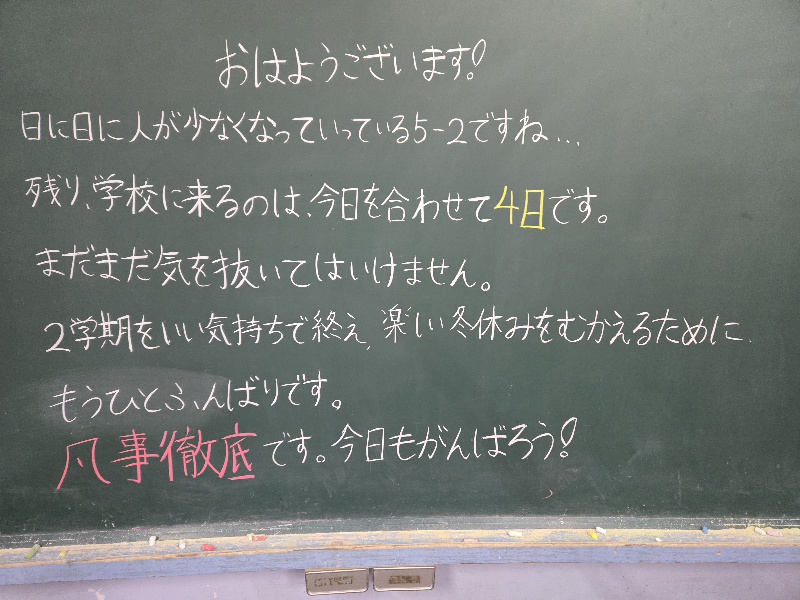 おはようございます!
日に日に人が少なくなっていっている5-2ですね...
残り、学校に来るのは、今日を合わせて4日です。
まだまだ気を抜いてはいけません。
2学期をいい気持ちで終え、楽しい冬休みをむかえるために、
もうひとふんばりです。
凡事徹底です。今日もがんばろう!